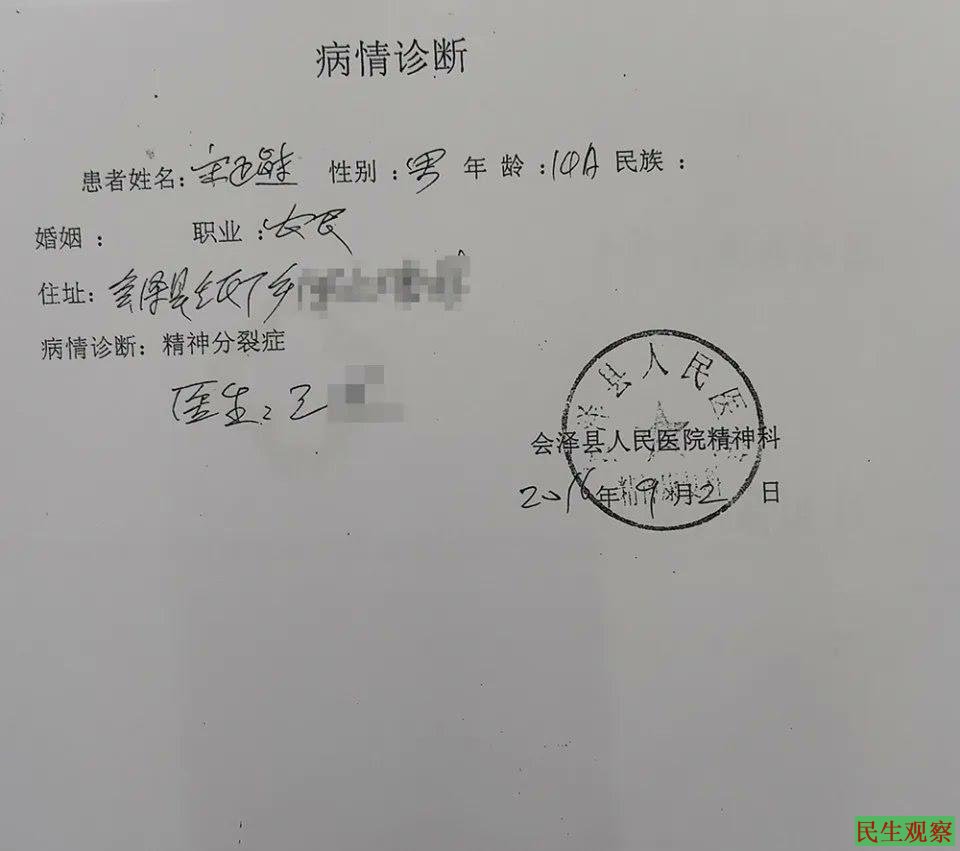 病情诊断
患者姓名: 宋 性别: 男 年龄: 民族:
婚姻: 职业: 农民
住址: 会泽县 乡
病情诊断: 精神分裂症
医生: 王
县人民医
会泽县人民医院精神科
年9月2日
民生观察